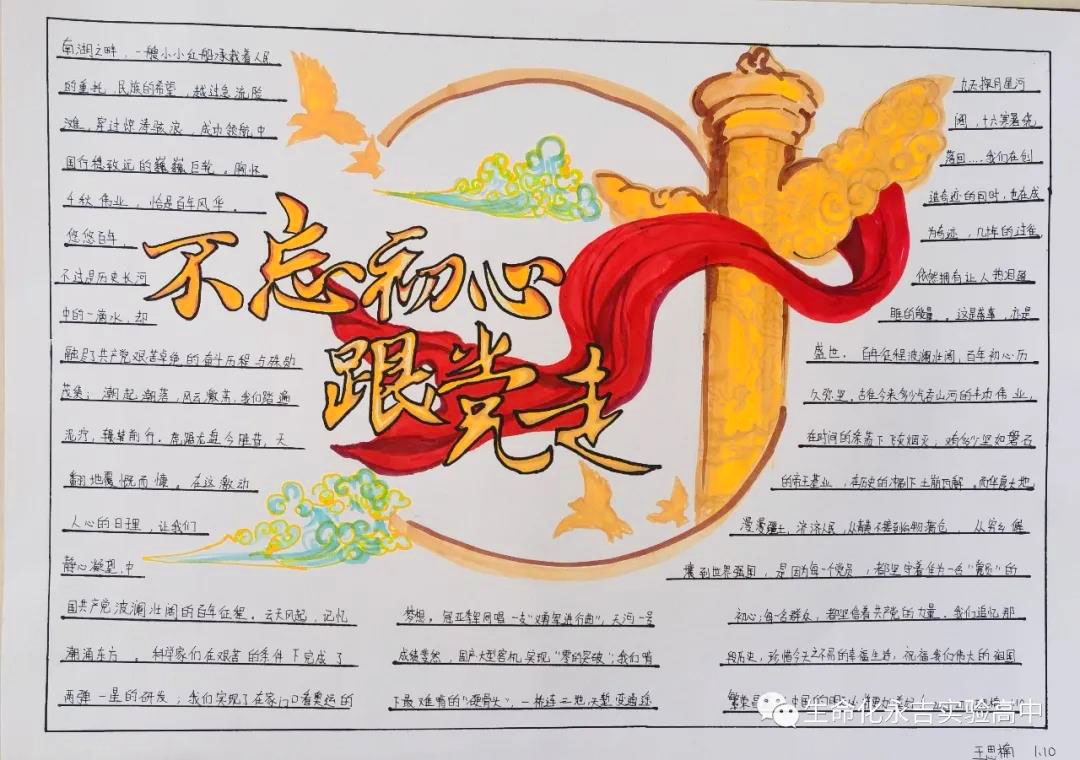 不忘初心
跟党走
南湖之畔，一艘小小红船承载着人民
的重托，民族的希望，越过急流险
滩，穿过惊涛骇浪，成功领航中
国行稳致远的巍巍巨轮。胸怀
千秋伟业，恰是百年风华。
悠悠百年
不过是历史长河
中的一滴水，却
融尽了共产党艰苦卓绝的奋斗历程与殊勋
茂绩；潮起潮落，风云激荡，我们踏遍
泥泞，鞍辇前行。虎踞龙盘今胜昔，天
翻地覆慨而慷。在这激动
人心的日理，让我们
静心凝望，中
国共产党波澜壮阔的百年征程。云天风起，记忆
潮涌东方。科学家们在艰苦的条件下完成了
两弹一星的研发；我们实现了在家门口看奥运的
梦想，冠亚季军同唱一支"义勇军进行曲"，天河一号
成绩斐然，国产大型客机实现"零的突破"；我们啃
下最难啃的"硬骨头"，一桥连三地，天堑变通途
九天探月星河
阔，十六寒暑绕
落回....我们在创
造奇迹的同时，也在成
为奇迹，几十年的过往
依然拥有让人热泪盈
眶的能量。这是荣幸，亦是
盛世。百年征程波澜壮阔，百年初心历
久弥坚。古往今来多少点吞山河的丰功伟业，
在时间的余荡下飞灰烟灭，难有多少坚如磐石
的帝王基业，在历史的冲刷下土崩瓦解。而华夏大地
漫漫疆土，济济人民，从黯淡不堪到临物满仓，从穷乡僻
壤到世界强国，是因为每一个党员，都坚守着作为一名"党员"的
初心；每一名群众，都坚信着共产党的力量。我们追忆那
段历史，珍惜今天之不易的幸福生活，祝福我们伟大的祖国
繁荣昌
中国的明天
生命化永吉实验高中
王思楠 1.10